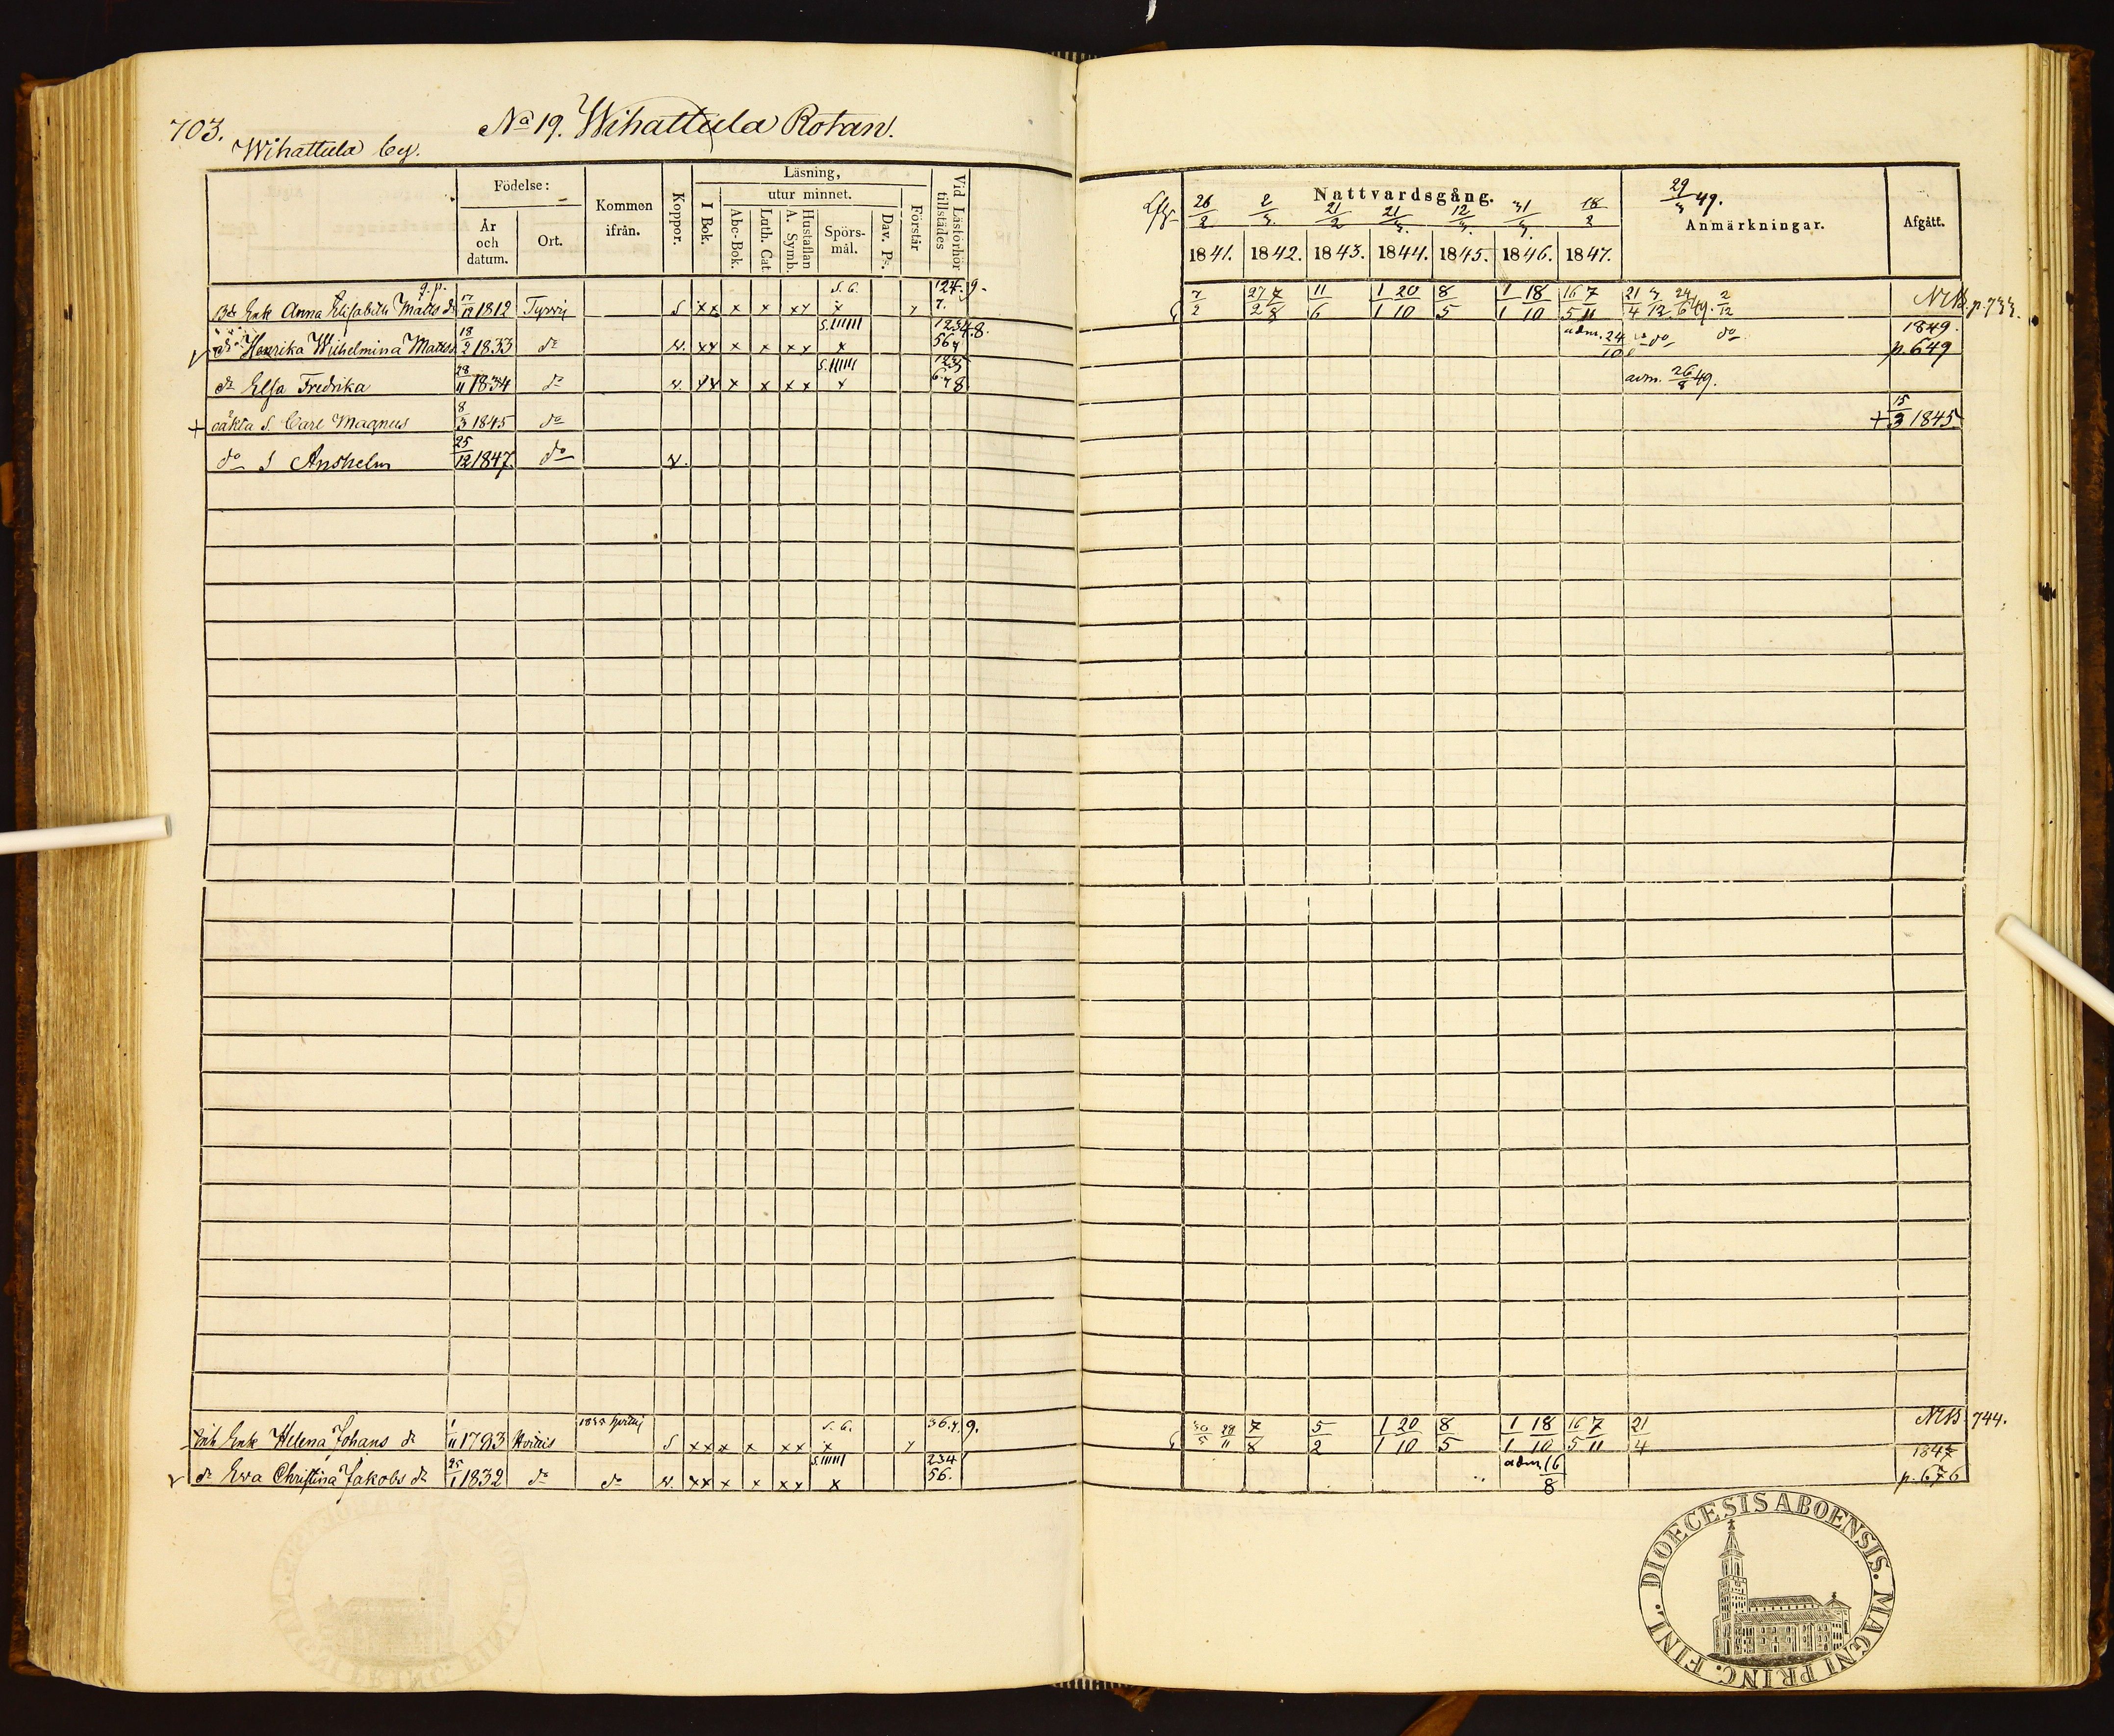 703. No 19. Wihattula Rotan.
Wihattula by.
Födelse: Kommen ifrån. Koppor. Läsning, Vid Läsförhör tillstädes
År och datum. Ort. I Bok. utur minnet. Förstår
Abc-Bok. Luth. Cat. Hustaflan A. Symb. Spörs-mål. Dav. Ps.
Enk Anna Elisabeth Matts dr 17/12 1812 Tyrvis S xx x x xx x 124. 9. 7.
dr Henrika Wilhelmina Matts 18/2 1833 do xx x x xx x 1234 8. 567
dr Elsa Fredrika 28/11 1834 do xx x x xx x 1235 678
oäkta S. Carl Magnus 8/3 1845 do
do S Anshelm 25/12 1847. do
Enk Helena Johans dr 1/11 1793 S xx x x xx x 36.7. 9.
dr Ewa Christina Jakobs dr 25/1 1832 do do xx x x xx x 234 56.
26/2 2/3. Nattvardsgång. 21/2 21/3. 12/3. 31/3. 18/2 29/3 49. Anmärkningar. Afgått.
1841. 1842. 1843. 1844. 1845. 1846. 1847.
7/2 27/2 7/8 11/6 1/1 20/10 8/5 1/1 18/10 16/5 7/11 21/4 3/12 24/6 49. 2/12 p. 733.
adm. 24/10 do do 1849. p. 649
adm. 26/8 49.
+ 15/3 1845
30/5 28/11 7/8 5/2 1/1 20/10 8/5 1/1 18/10 16/5 7/11 21/4 744.
adm. 16/8 1847 p. 676
DIOECESIS ABOENSIS. MAGNI PRINC. FINL.